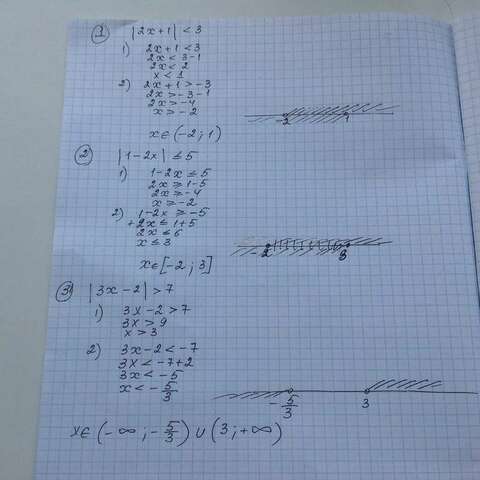 1) |2x+1| < 3
1) 2x+1 < 3
2x < 3-1
2x < 2
x < 1
2) 2x+1 > -3
2x > -3-1
2x > -4
x > -2
-2 1
x ∈ (-2; 1)
2) |1-2x| ≤ 5
1) 1-2x ≤ 5
2x ≥ 1-5
2x ≥ -4
x ≥ -2
2) 1-2x ≥ -5
+2x ≤ 1+5
2x ≤ 6
x ≤ 3
-2 3
x ∈ [-2; 3]
3) |3x-2| > 7
1) 3x-2 > 7
3x > 9
x > 3
2) 3x-2 < -7
3x < -7+2
3x < -5
x < -5/3
-5/3 3
x ∈ (-∞; -5/3) ∪ (3; +∞)